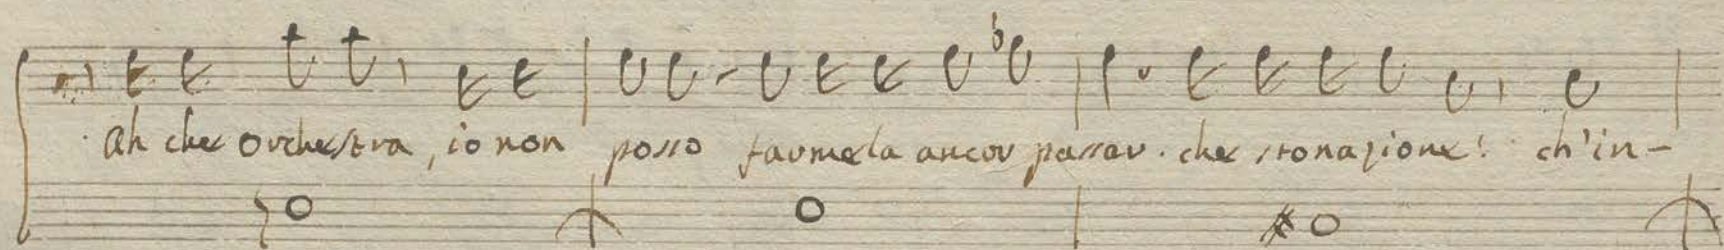 Ah che orchestra, io non posso farmela ancor passar. che stonazione! ch'in-